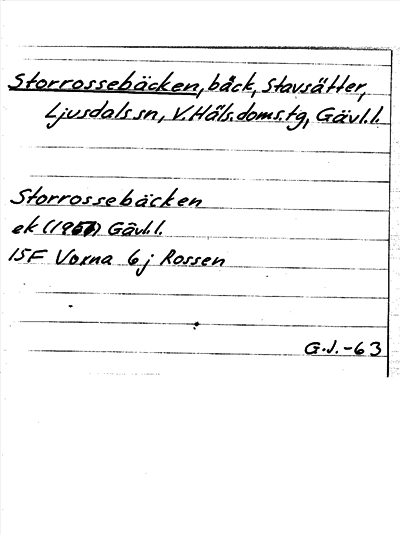 Storrossebäcken, bäck, Stavsätter,
Ljusdals sn, V. Häls. doms. tg, Gävl. l.
Storrossebäcken
ek Gävl. l.
15F Voxna 6 j Rossen
G.J.-63